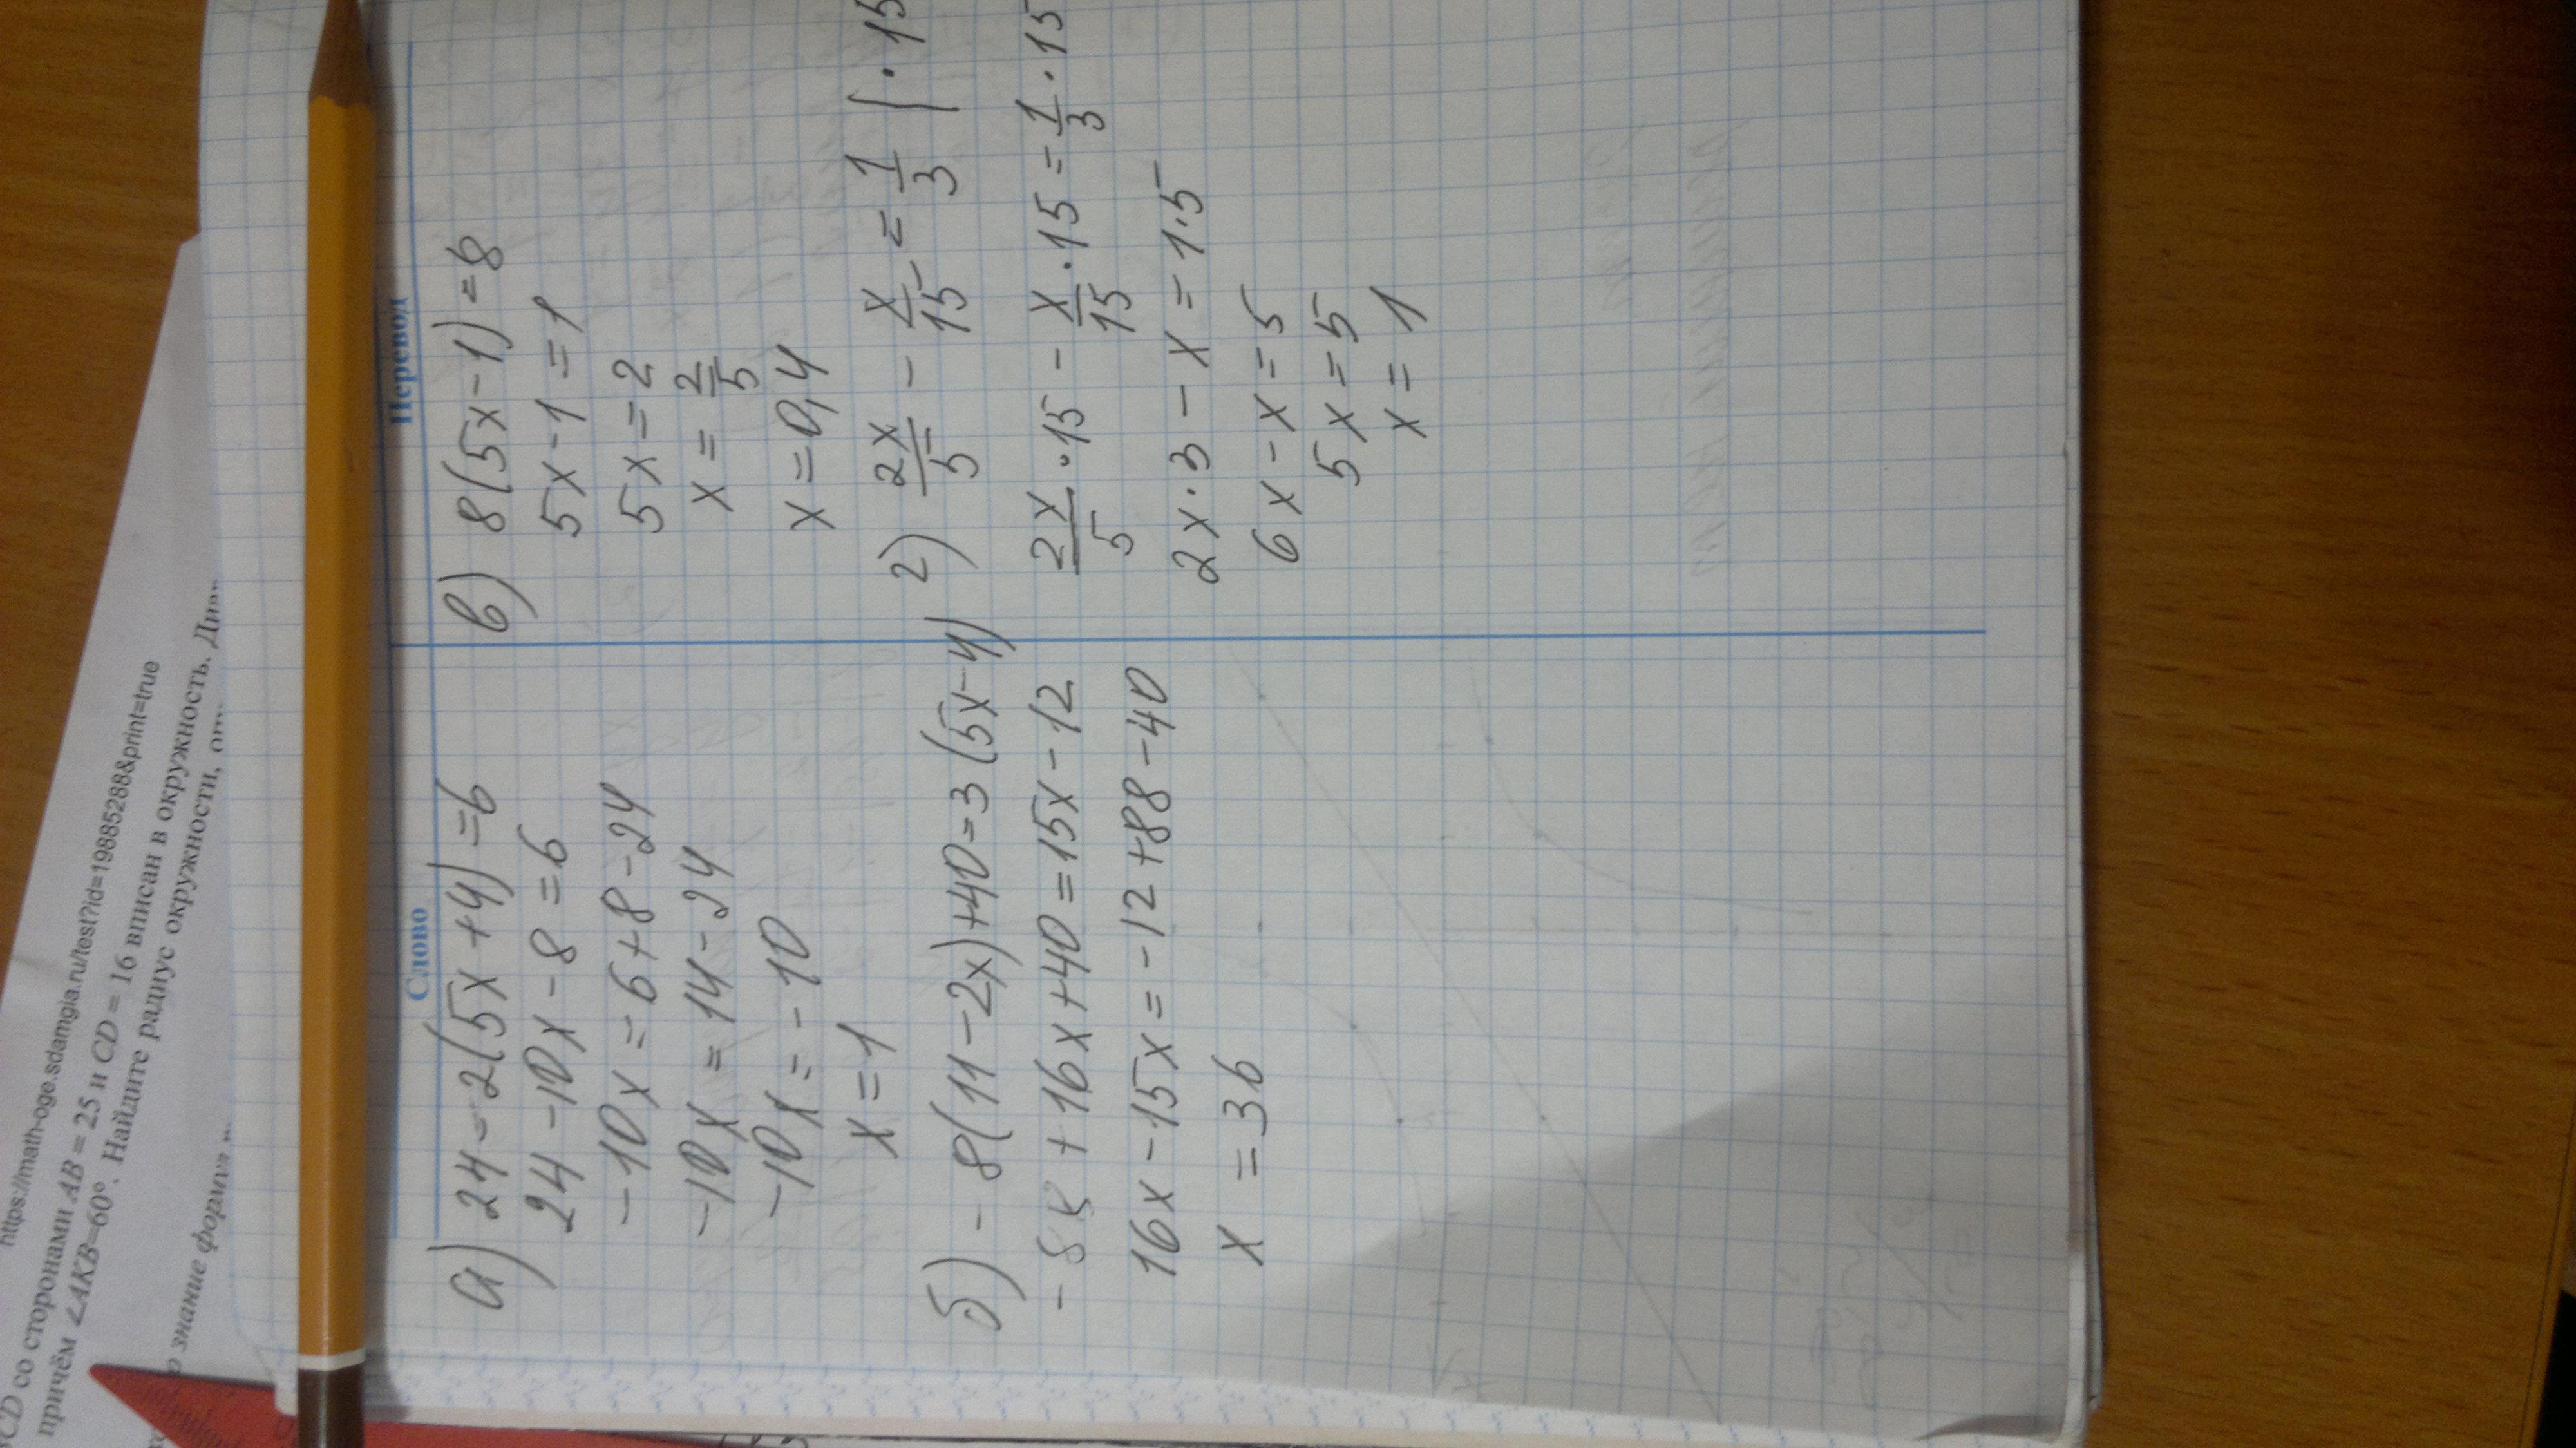 https://math-oge.sdamgia.ru/test?id=19885288&print=true
CD со сторонами AB = 25 и CD = 16 вписан в окружность.
причём ∠AKB=60°. Найдите радиус окружности,
знание
Слово
а) 24 - 2(5x+4)=6
24 -10x - 8 = 6
-10x = 6+8-24
-10x = 14-24
-10x = -10
x = 1
б) - 8(11-2x)+40=3(5x-4)
- 88 + 16x+40 = 15x - 12
16x - 15x = -12+88-40
x = 36
Перевод
в) 8(5x-1)=8
5x-1=1
5x=2
x = 2/5
x = 0,4
г) 2x/5 - x/15 = 1/3 | · 15
2x/5 · 15 - x/15 · 15 = 1/3 · 15
2x · 3 - x = 1·5
6x - x = 5
5x = 5
x = 1